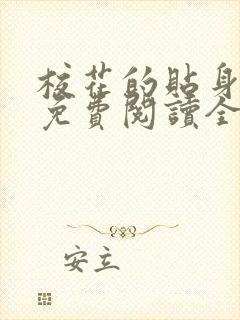 校花的貼身
免費閱讀全
安立